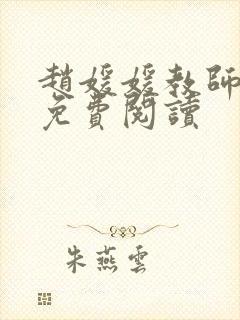 趙媛媛教師
免費閱讀
朱燕雲